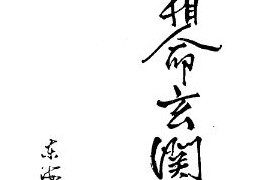 相命玄関
东海